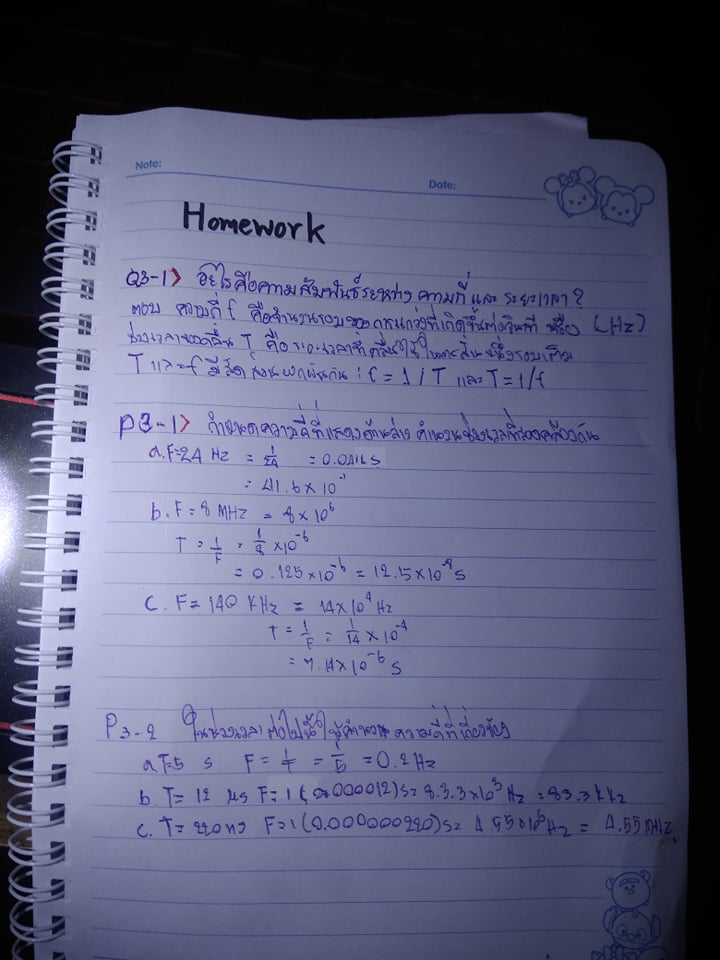 Note:
Date:
Homework
Q3-1> อะไรคือความสัมพันธ์ระหว่าง ความถี่ และ ระยะเวลา?
ตอบ ความถี่ f คือจำนวนรอบของการแกว่งที่เกิดขึ้นต่อวินาที หรือ (Hz)
ช่วงเวลาของคลื่น T คือ ระยะเวลาที่คลื่นใช้ในการสั่นหนึ่งรอบเต็ม
T และ f มีสัดส่วนผกผันกัน : f = 1/T และ T = 1/f
P3-1> กำหนดความถี่ที่แสดงด้านล่าง คำนวนช่วงเวลาที่สอดคล้องกัน
a. F=24 Hz = 1/24 = 0.0416 s
= 41.6 x 10
b. F = 8 MHz = 8 x 10⁶
T = 1/F = 1/8 x 10⁻⁶
= 0.125 x 10⁻⁶ = 12.5 x 10⁻⁸ s
C. F = 140 KHz = 14 x 10⁴ Hz
T = 1/F = 1/14 x 10⁻⁴
= 7.14 x 10⁻⁶ s
P3-2 ในช่วงเวลาต่อไปนี้ให้คำนวน ความถี่ที่เกี่ยวข้อง
a T=5 s F = 1/T = 1/5 = 0.2 Hz
b. T= 12 μs F=1(0.000012)s= 8.3.3x10³ Hz = 83.3 kHz
C. T= 220 ns F=1(0.000000220)s= 4.55x10⁶ Hz = 4.55 MHz